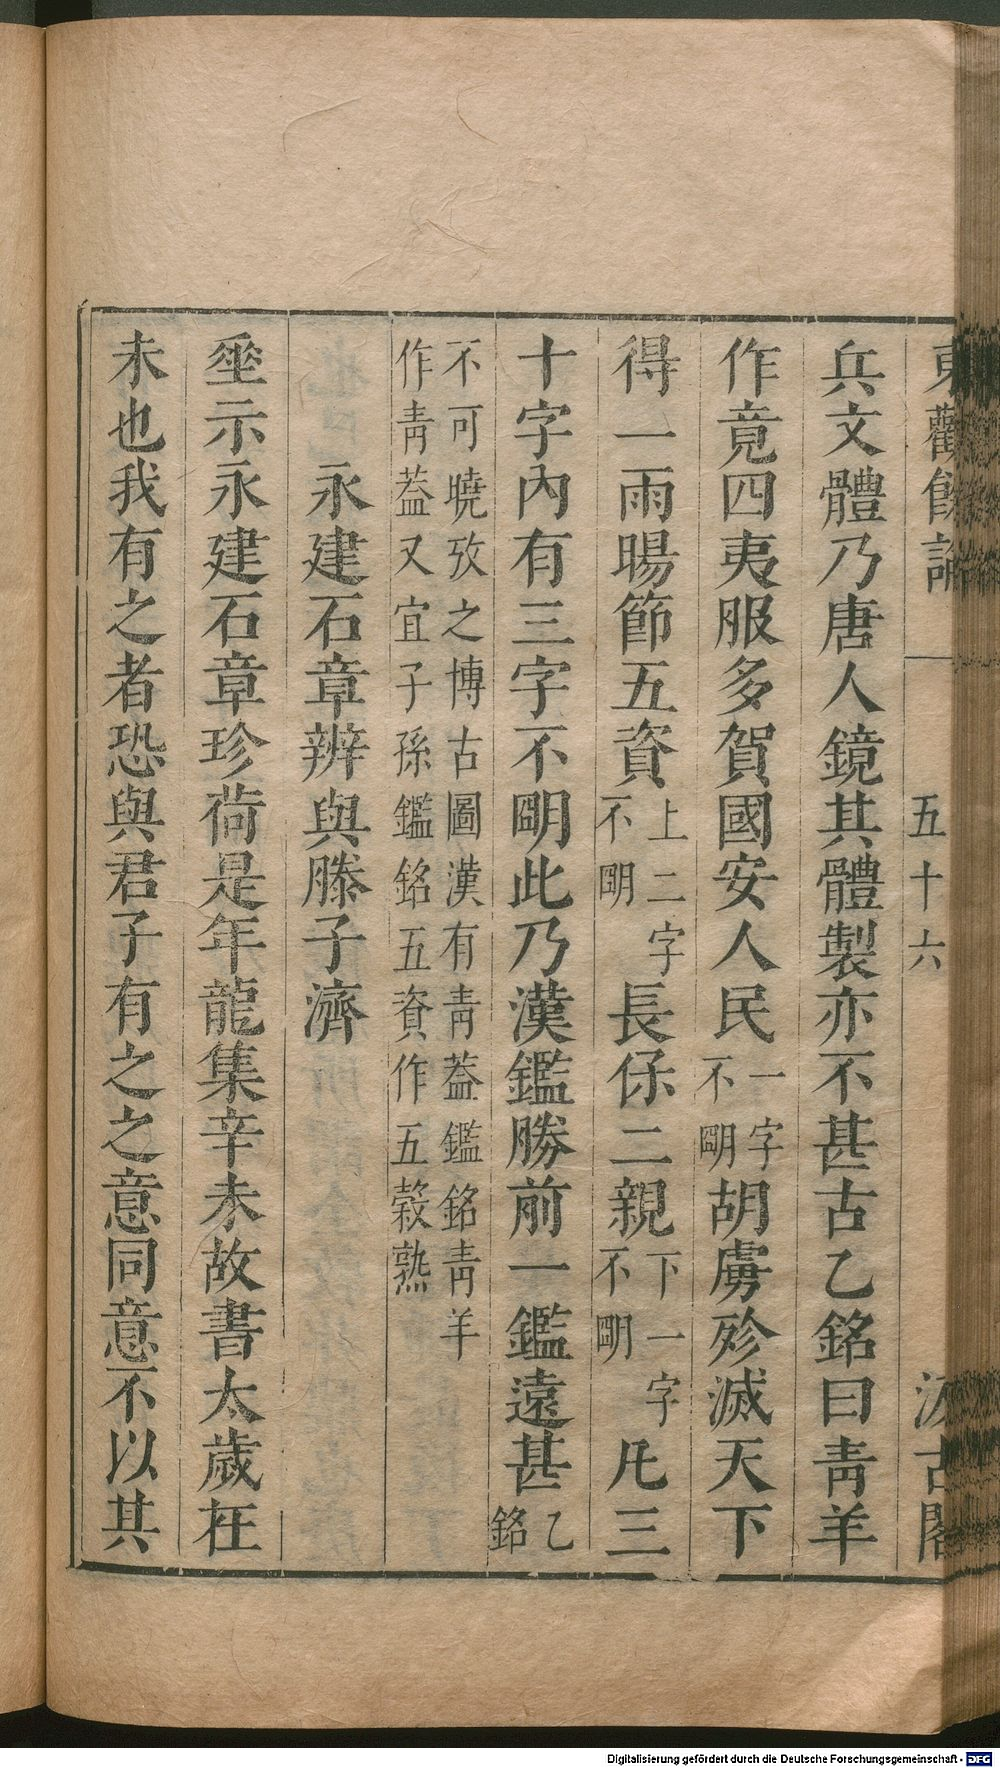 東觀餘論 五十六 汲古閣
兵文體乃唐人鏡其體製亦不甚古乙銘曰青羊
作竟四夷服多賀國安人民一字不朙胡虜殄滅天下
得一雨暘節五資上二字不朙長保二親下一字不朙凡三
十字內有三字不朙此乃漢鑑勝前一鑑遠甚乙銘
不可曉攷之博古圖漢有青葢鑑銘青羊
作青葢又宜子孫鑑銘五資作五穀熟
永建石章辨與滕子濟
埀示永建石章珍荷是年龍集辛未故書太歲在
未也我有之者恐與君子有之之意同意不以其
Digitalisierung gefördert durch die Deutsche Forschungsgemeinschaft - DFG